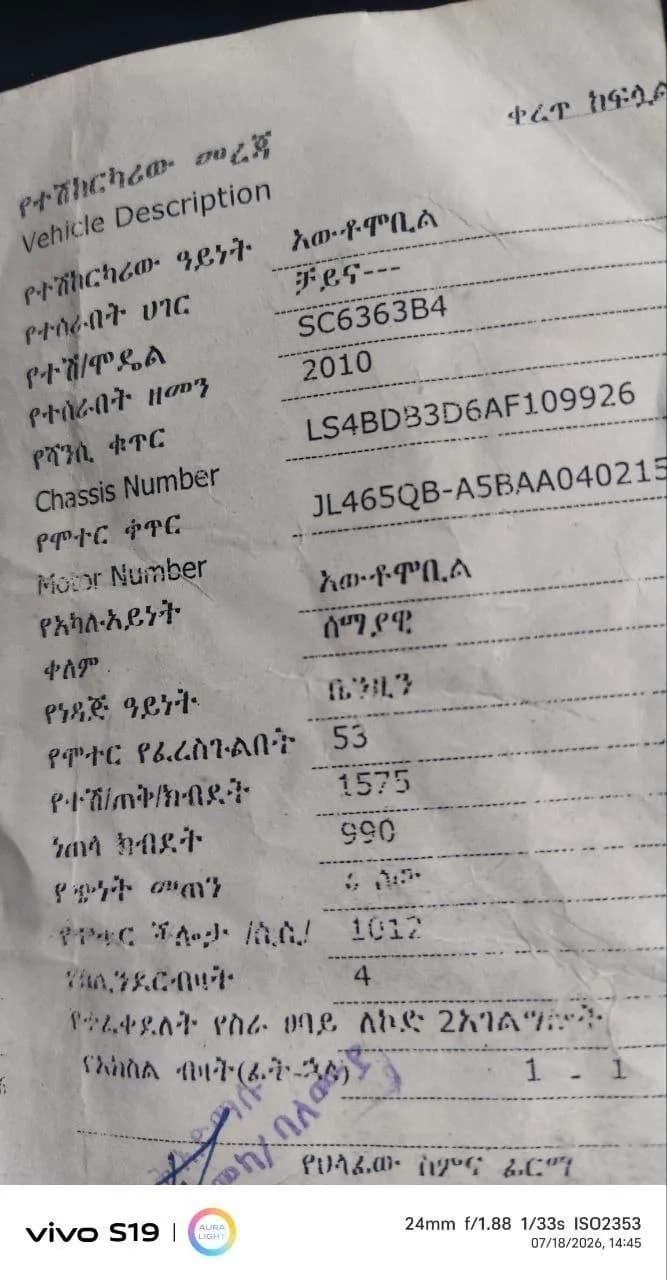 ቀረጥ ከፍሏል
የተሽከርካሪው መረጃ
Vehicle Description
የተሽከርካሪው ዓይነት አውቶሞቢል
የተሰራበት ሀገር ቻይና---
የተሽ/ሞዴል SC6363B4
የተሰራበት ዘመን 2010
የሻንሲ ቁጥር LS4BDB3D6AF109926
Chassis Number
የሞተር ቀጥር JL465QB-A5BAA040215
Motor Number
የአካሉ አይነት አውቶሞቢል
ቀለም ሰማያዊ
የነዳጅ ዓይነት ቤንዚን
የሞተር የፈረስጉልበት 53
የተሽ/ጠቅ/ክብደት 1575
ነጠላ ክብደት 990
የጭነት መጠን
የሞተር ችሎታ /ሲሲ/ 1012
የሲሊንደር ብዛት 4
የተፈቀደለት የስራ ፀባይ ለኮድ 2አገልግሎት
የአክስል ብዛት(ፊት-ኋላ) 1 - 1
የሀላፊው ስምና ፊርማ
vivo S19 | AURA LIGHT 24mm f/1.88 1/33s ISO2353
07/18/2026, 14:45